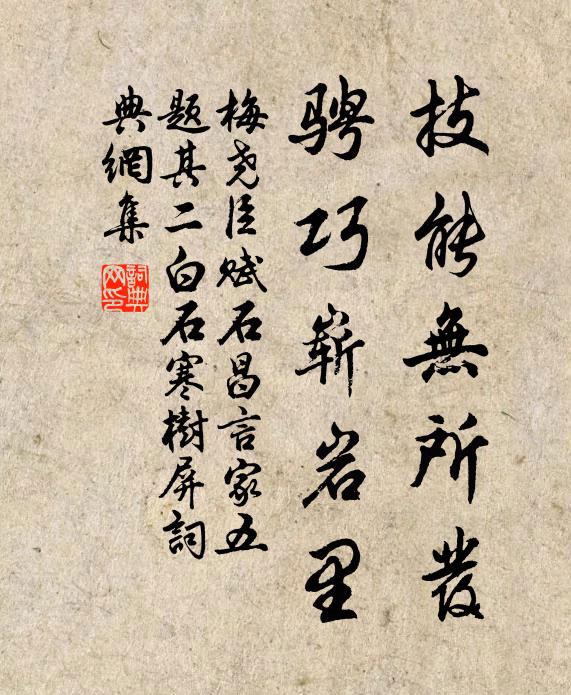 技能無所發
骋巧嶄岩里
梅尧臣賦石昌言家五
題其二白石寒樹屏詞
典網集
詞典
网印